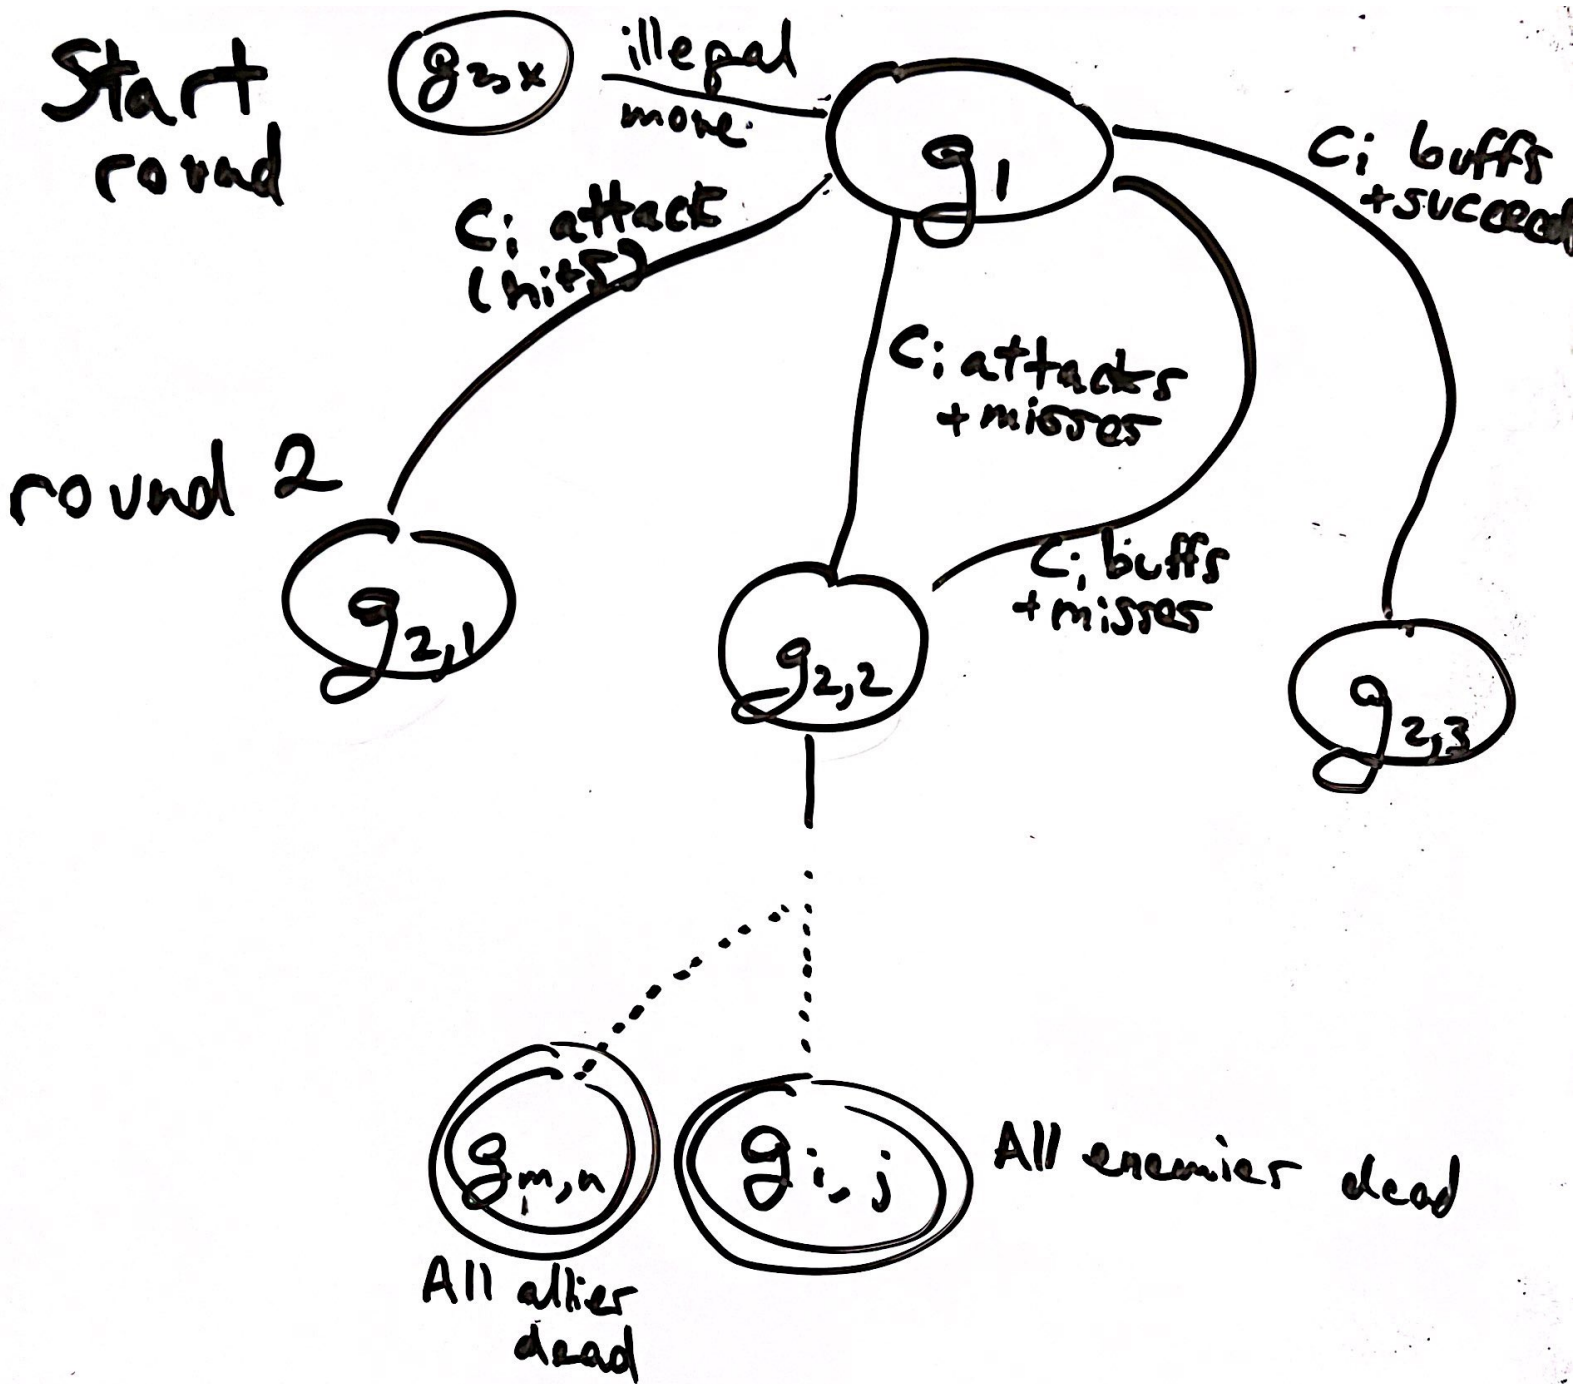 Start
round
g2,x
illegal
move
g1
Ci buffs
+succeed
Ci attack
(hits)
Ci attacks
+misses
round 2
Ci buffs
+misses
g2,1
g2,2
g2,3
gm,n
gi,j
All enemies dead
All allies
dead